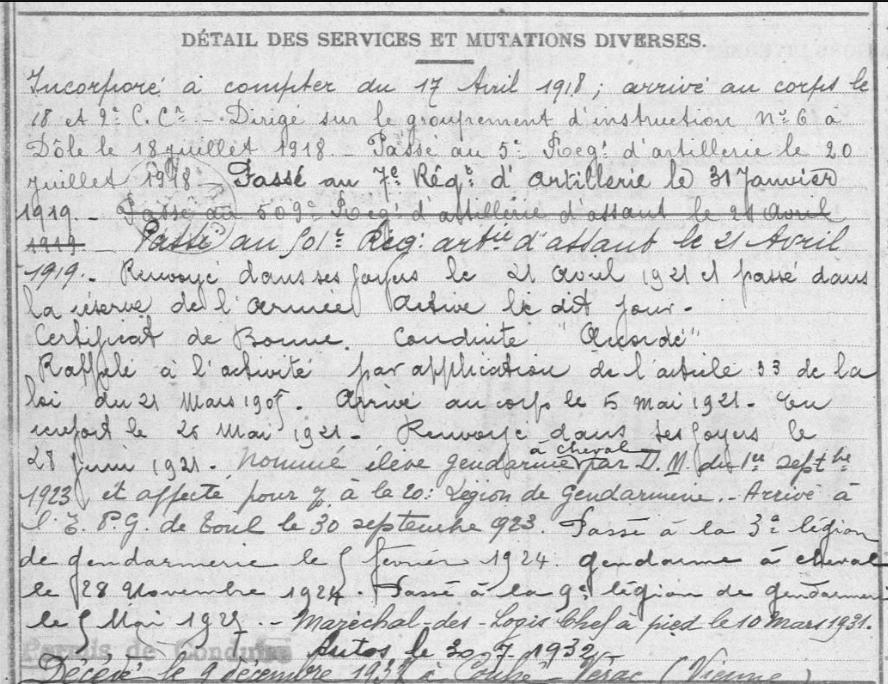 DÉTAIL DES SERVICES ET MUTATIONS DIVERSES.
Incorporé à compter du 17 Avril 1918; arrivé au corps le
18 et 2e C. Cr - Dirigé sur le groupement d'instruction No 6 à
Dôle le 18 juillet 1918 - Passé au 5e Regt d'artillerie le 20
juillet 1918 - Passé au 7e Régt d'artillerie le 31 Janvier
1919. - Passé au 509e Regt d'artillerie d'assaut le 21 Avril
1919 - Passé au 501e Rég. artie d'assaut le 21 Avril
1919. - Renvoyé dans ses foyers le 21 Avril 1921 et passé dans
la réserve de l'Armée Active le dit jour.
Certificat de Bonne Conduite "Accordé"
Rappelé à l'activité par application de l'article 33 de la
loi du 21 Mars 1905. Arrivé au corps le 5 Mai 1921. En
renfort le 26 Mai 1921. Renvoyé dans ses foyers le
28 Juin 1921. nommé élève gendarme à cheval par D. M. du 1er Septbre
1923 et affecté pour à la 20e Légion de Gendarmerie. - Arrivé à
l'E. P. G. de Toul le 30 septembre 923. Passé à la 3e légion
de gendarmerie le 5 février 1924. gendarme à cheval
le 28 Novembre 1924. Passé à la 9e légion de gendarmerie
le 5 Mai 1925. - Maréchal-des-Logis Chef à pied le 10 Mars 1931.
Permis de Conduire Autos le 30-7-1932
Décédé le 9 décembre 1932 à Couhé-Vérac (Vienne)